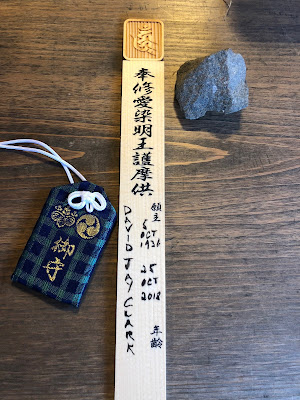 奉修愛染明王護摩供
願主
OCT
25
OCT
2018
年齢
DAVID JAY CLARK
御守